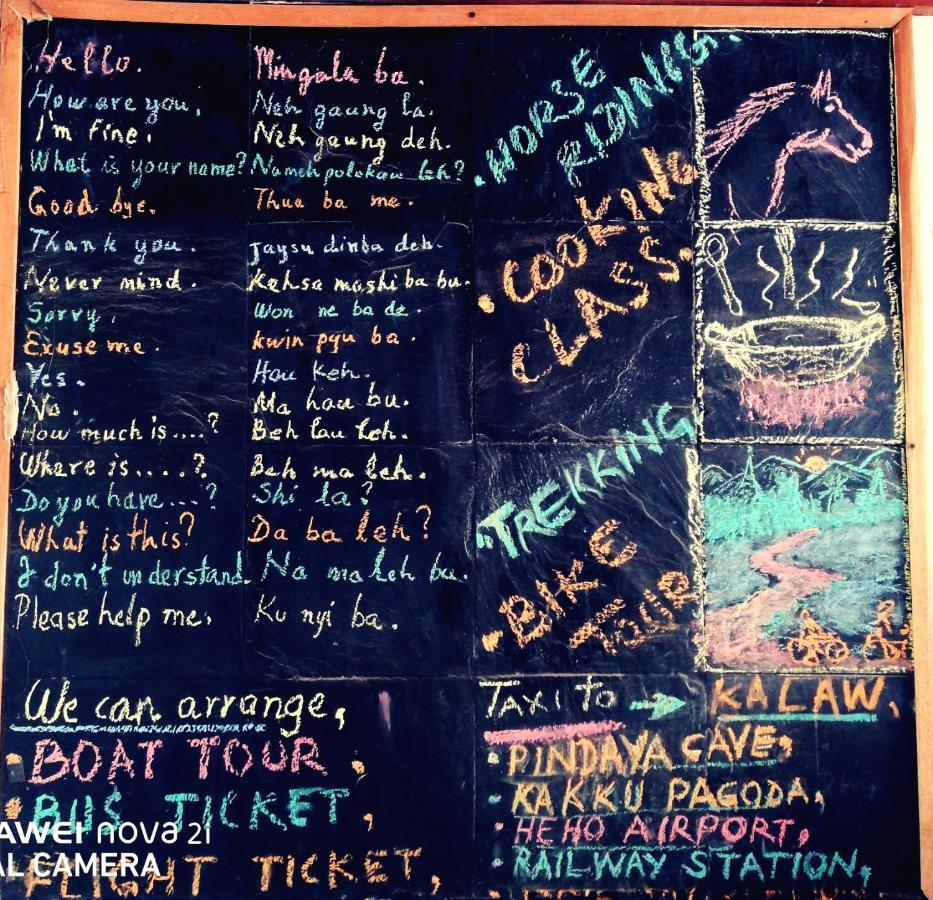 Hello. Mingala ba.
How are you, Neh gaung la.
I'm fine, Neh gaung deh.
What is your name? Nameh
Good bye. Thua ba me.
Thank you. Jaysu dinba deh.
Never mind. Kehsa mashi ba bu.
Sorry, Won ne ba de.
Exuse me. kwin pyu ba.
Yes. Hou keh.
No. Ma hau bu.
How much is ....? Beh lau leh.
Where is ....? Beh ma leh.
Do you have ....? Shi la?
What is this? Da ba leh?
I don't understand. Na ma leh bu.
Please help me, Ku nyi ba.
. HORSE
RIDINGS.
. COOKING
CLASS.
. TREKKING
. BIKE
TOUR
We can arrange,
. BOAT TOUR,
. BUS TICKET,
FLIGHT TICKET,
TAXI to → KALAW,
. PINDAYA CAVE,
. KAKKU PAGODA,
. HEHO AIRPORT,
. RAILWAY STATION,
AWEI nova 2i
AL CAMERA